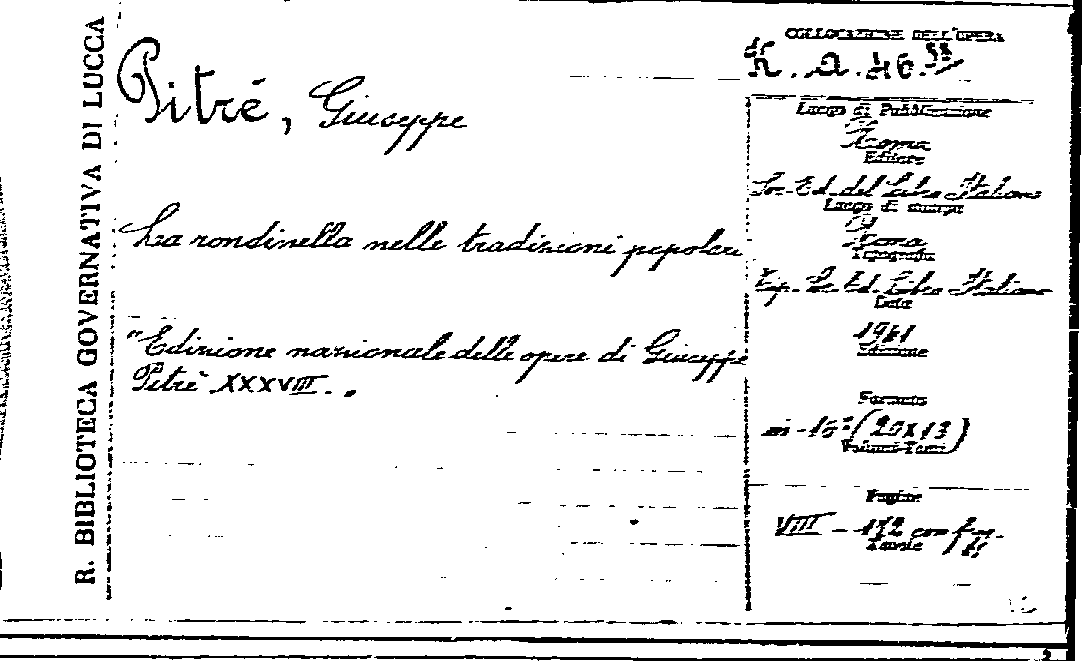 R. BIBLIOTECA GOVERNATIVA DI LUCCA
Pitrè, Giuseppe
La rondinella nelle tradizioni popolari
"Edizione nazionale delle opere di Giuseppe
Pitrè XXXVIII.
COLLOCAZIONE DELL'OPERA
K. a. 46.
Luogo di Pubblicazione
Roma
Editore
Soc. Ed. del Libro Italiano
Luogo di stampa
Roma
Tipografia
Tip. So. Ed. Libro Italiano
Data
1941
Edizione
Formato
in-16° (20x13)
Volumi-Tomi
Pagine
VIII - 172 con fig.
Tavole